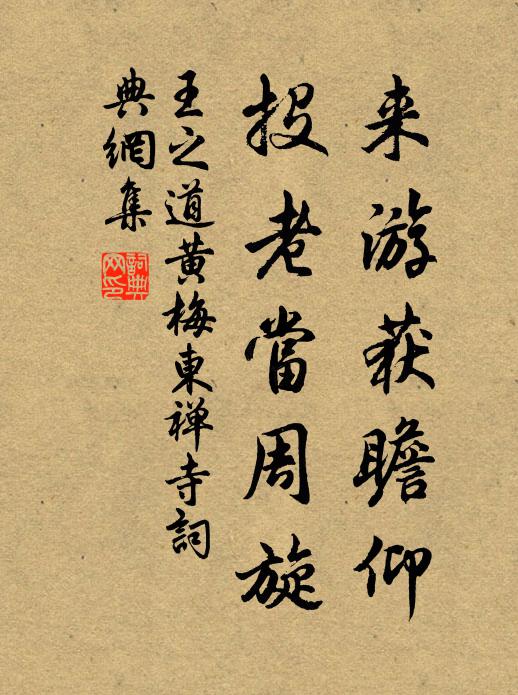 来游获瞻仰
投老當周旋
王之道黄梅東禅寺詞
典網集
詞典
网印